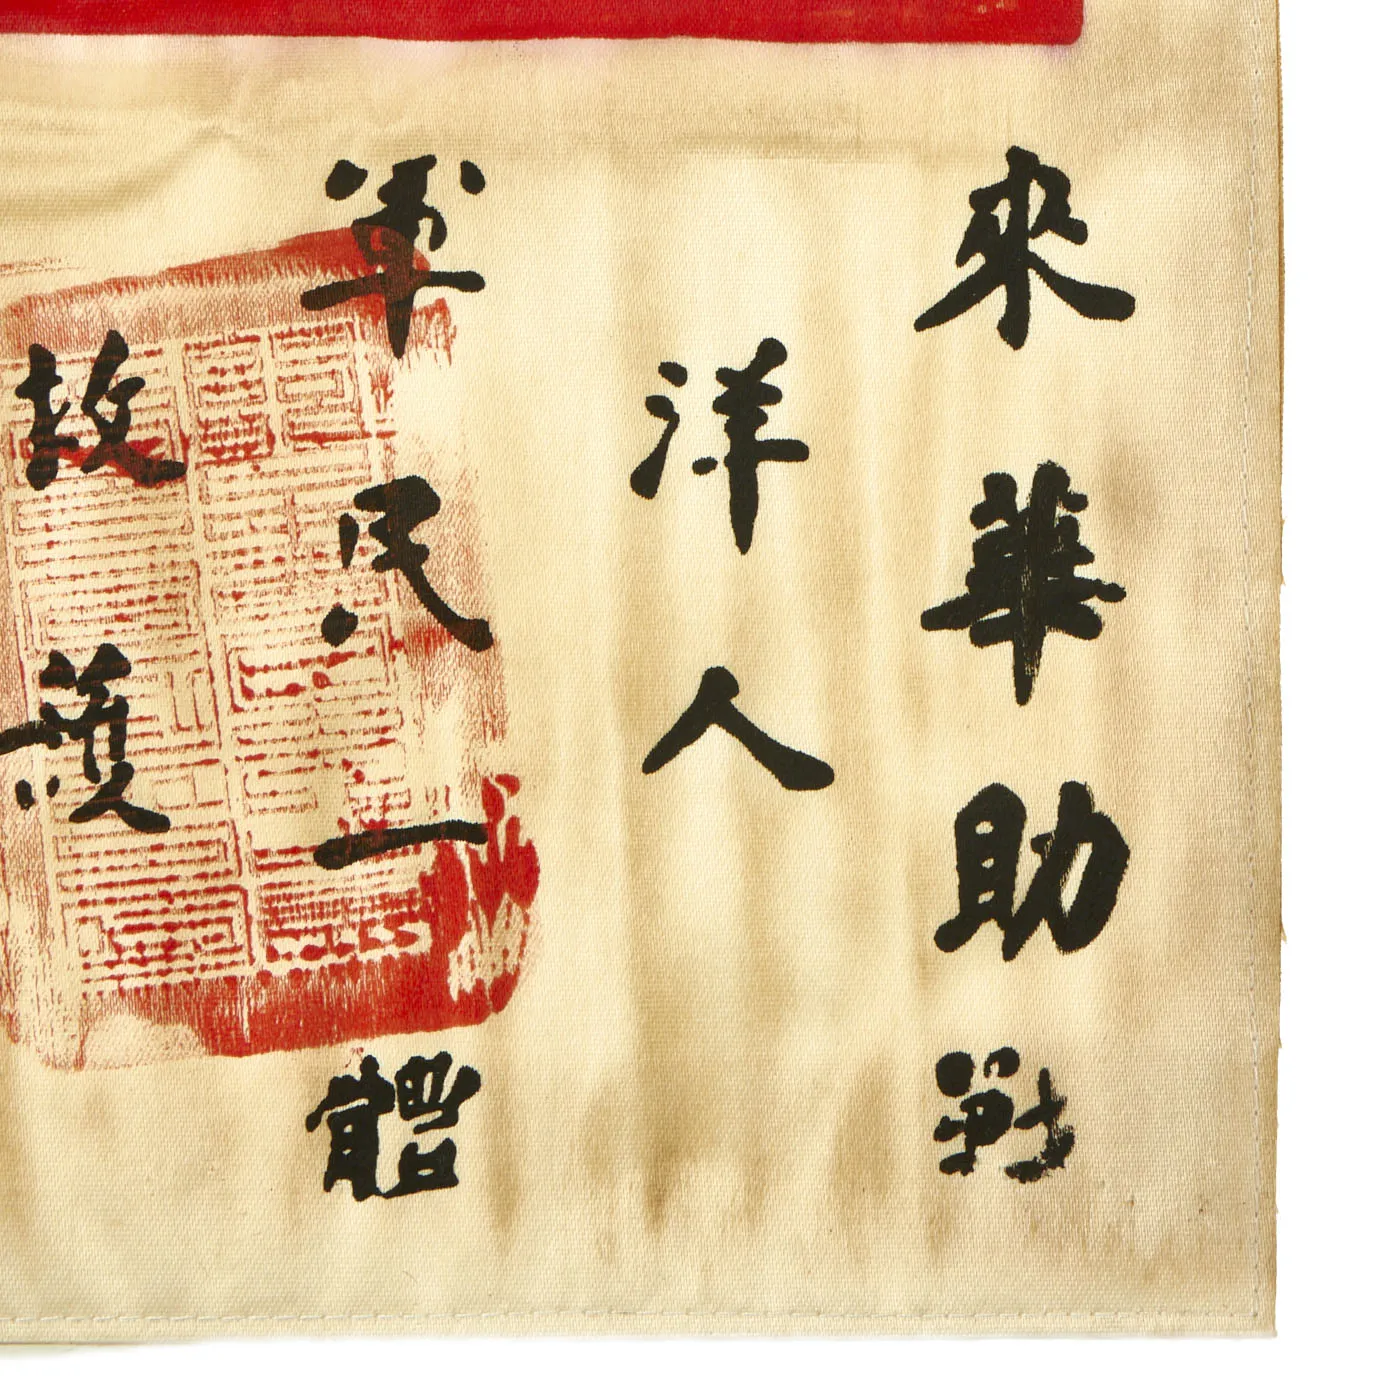 來華助戰
洋人
軍民一體
救護